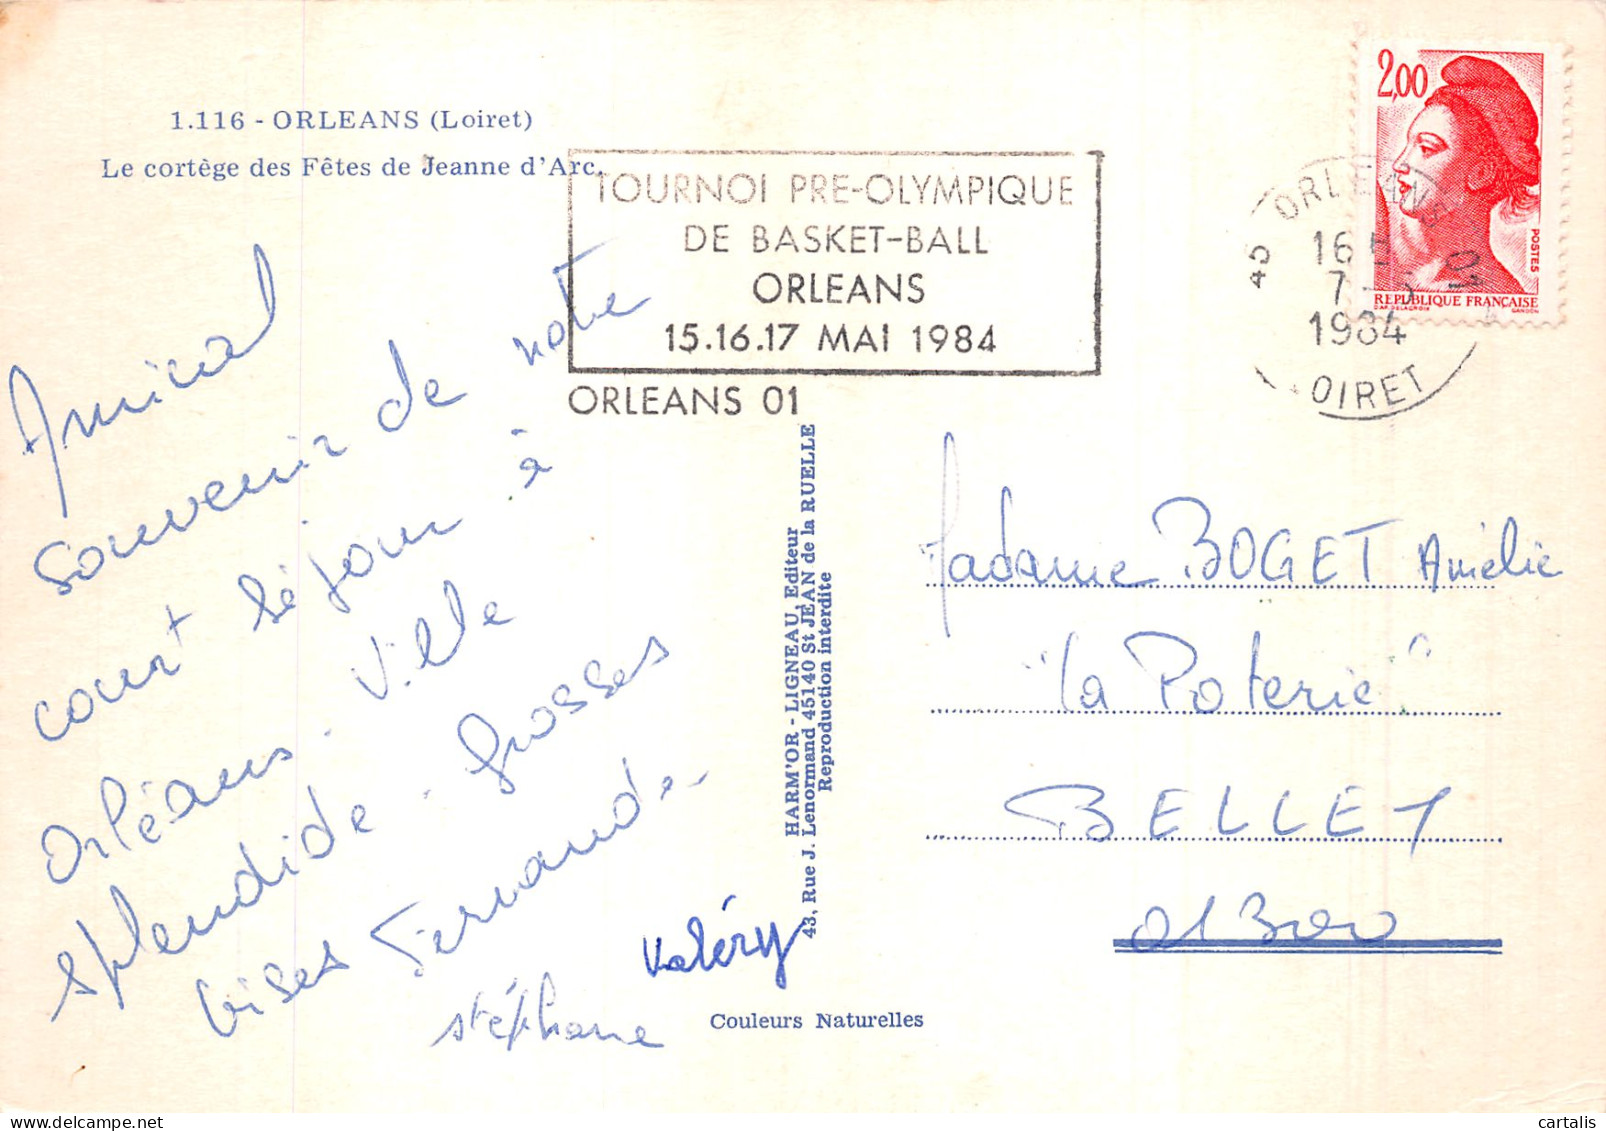 1.116 - ORLEANS (Loiret)
Le cortège des Fêtes de Jeanne d'Arc.
TOURNOI PRE-OLYMPIQUE
DE BASKET-BALL
ORLEANS
15.16.17 MAI 1984
ORLEANS 01
2,00
POSTES
REPUBLIQUE FRANÇAISE
D'AP. DELACROIX GANDON
45 ORLEANS 01
16
7-5
1984
LOIRET
Amical
souvenir de notre
court séjour à
Orléans. Ville
splendide. Grosses
bises Fernande
Stéphane
Valéry
HARM'OR - LIGNEAU, Editeur
43, Rue J. Lenormand 45140 St JEAN de la RUELLE
Reproduction interdite
Madame BOGET Amélie
"La Poterie"
BELLEY
01300
Couleurs Naturelles
cartalis